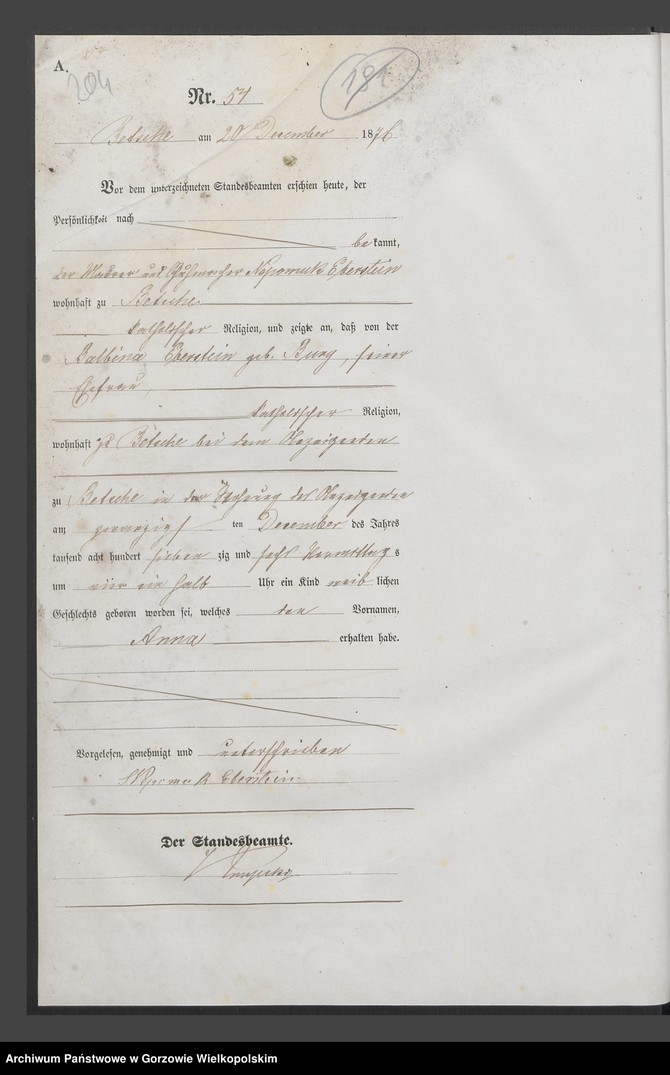 A.
204
191
Nr. 54
Betsche am 20 December 1876
Vor dem unterzeichneten Standesbeamten erschien heute, der
Persönlichkeit nach
bekannt,
der Maurer und Schuhmacher Nepomuk Eberstein
wohnhaft zu Betsche
katholischer Religion, und zeigte an, daß von der
Balbina Eberstein geb. Burg, seiner
Ehefrau,
katholischer Religion,
wohnhaft zu Betsche bei dem Anzeigenden
zu Betsche in der Wohnung des Anzeigenden
am zwanzigsten December des Jahres
tausend acht hundert siebenzig und sechs Vormittags
um vier ein halb Uhr ein Kind weiblichen
Geschlechts geboren worden sei, welches den Vornamen,
Anna erhalten habe.
Vorgelesen, genehmigt und unterschrieben
Nepomuk Eberstein
Der Standesbeamte.
Archiwum Państwowe w Gorzowie Wielkopolskim